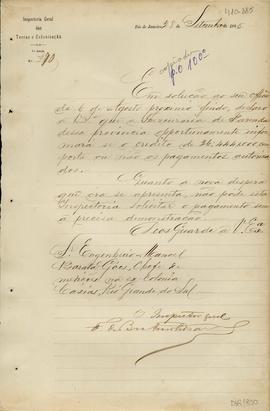 410.885
Inspetoria Geral
das
Terras e Colonização
Rio de Janeiro, 28 de Setembro de 188
Nº 390
copiado
Em solução ao seu officio
de 6 de Agosto proximo findo, declaro
a Vª que a Thesouraria de Fazenda
dessa provincia opportunamente infor
mará se o credito de 36:444$000 com
porta ou não os pagamentos autorisa
dos.
Quanto a nova despeza
que ora se apresenta, não pode esta
Inspectoria solicitar o pagamento sem
a precisa demonstração.
Deos Guarde a V.
Sr. Engenheiro Manoel
Barata Góes, Chefe de
medições na ex Colonia
Caxias, Rio Grande do Sul
O Inspector geral
F. de